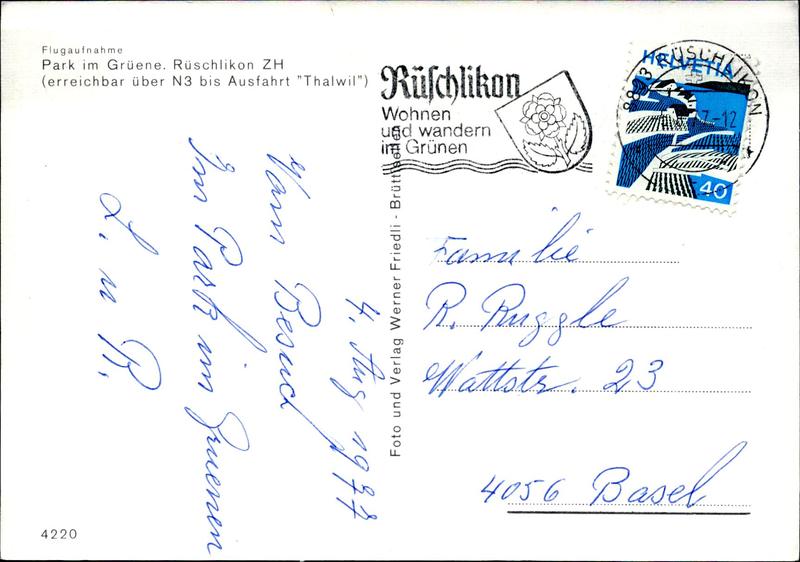 Flugaufnahme
Park im Grüene. Rüschlikon ZH
(erreichbar über N3 bis Ausfahrt "Thalwil")
Rüschlikon
Wohnen
und wandern
im Grünen
8803 RÜSCHLIKON
HELVETIA
40
4. Aug 1977
Vom Besuch
Im Park im Gruenen
L. u R.
Foto und Verlag Werner Friedli - Brüttisellen
Familie
R. Ruggle
Wattstr. 23
4056 Basel
4220